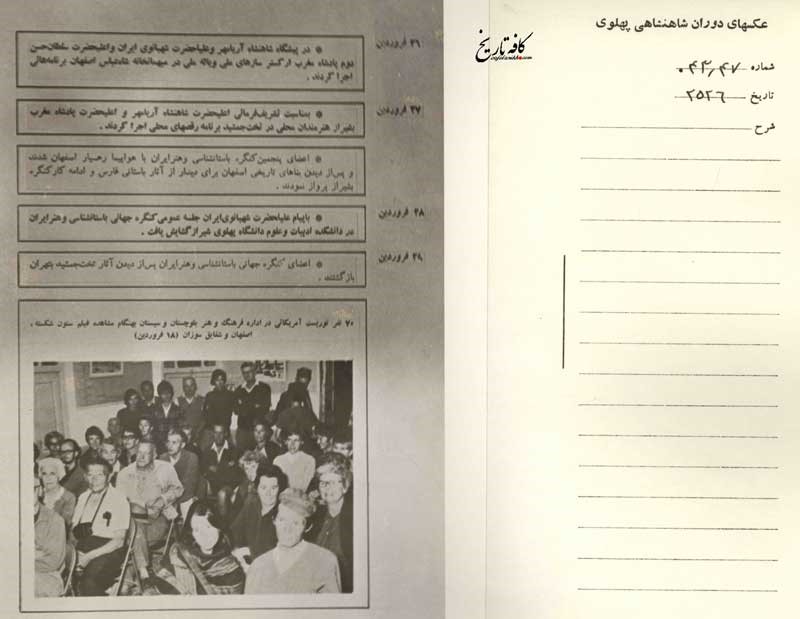 عکسهای دوران شاهنشاهی پهلوی
کافه تاریخ
شماره ۰۴۳٫۴۷
تاریخ ۲۵۳۶
شرح
۲۶ فروردین
* در پیشگاه شاهنشاه آریامهر و علیاحضرت شهبانوی ایران و اعلیحضرت سلطان‌حسن
دوم پادشاه مغرب ارکستر سازهای ملی و باله ملی در میهمانخانه شاه‌عباس اصفهان برنامه‌هائی
اجرا کردند .
۲۷ فروردین
* بمناسبت تشریف‌فرمائی اعلیحضرت شاهنشاه آریامهر و اعلیحضرت پادشاه مغرب
بشیراز هنرمندان محلی در تخت‌جمشید برنامه رقصهای محلی اجرا کردند .
* اعضای پنجمین‌کنگره باستانشناسی و هنر ایران با هواپیما رهسپار اصفهان شدند
و پس‌از دیدن بناهای تاریخی اصفهان برای دیدار از آثار باستانی فارس و ادامه کارکنگره
بشیراز پرواز نمودند .
۲۸ فروردین
* باپیام علیاحضرت شهبانوی‌ایران جلسه عمومی‌کنگره جهانی باستانشناسی وهنرایران
در دانشکده ادبیات وعلوم دانشگاه پهلوی شیرازگشایش یافت .
۲۹ فروردین
* اعضای کنگره جهانی باستانشناسی وهنرایران پس‌از دیدن آثار تخت‌جمشید بتهران
بازگشتند .
۷۰ نفر توریست آمریکائی در اداره فرهنگ و هنر بلوچستان و سیستان بهنگام مشاهده فیلم ستون شکسته ،
اصفهان و شقایق سوزان (۱۸ فروردین)